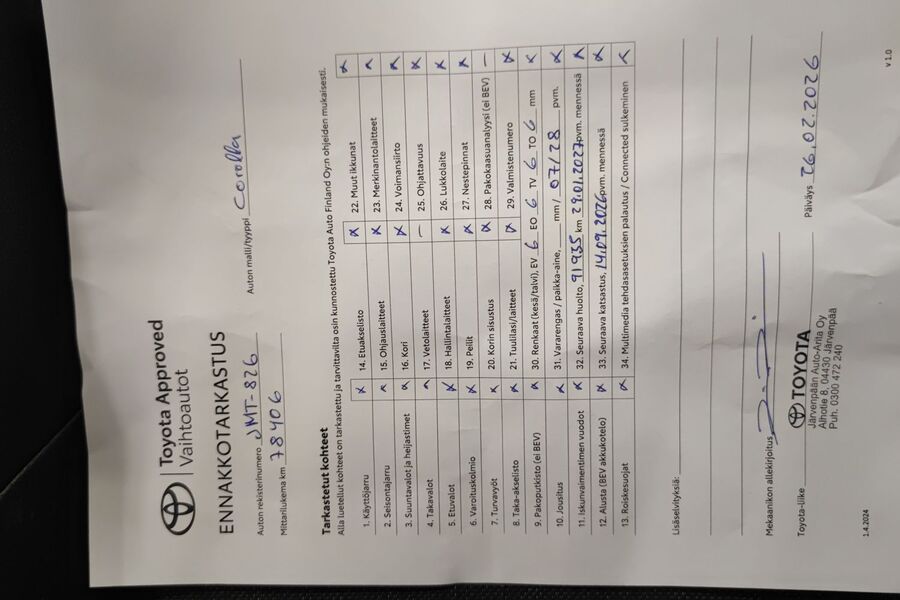 Toyota Approved
Vaihtoautot
ENNAKKOTARKASTUS
Auton rekisterinumero JMT-826 Auton malli/tyyppi Corolla
Mittarilukema km 78406
Tarkastetut kohteet
Alla luetellut kohteet on tarkastettu ja tarvittavilta osin kunnostettu Toyota Auto Finland Oy:n ohjeiden mukaisesti.
1. Käyttöjarru x 14. Etuakselisto x 22. Muut ikkunat x
2. Seisontajarru x 15. Ohjauslaitteet x 23. Merkinantolaitteet x
3. Suuntavalot ja heijastimet x 16. Kori x 24. Voimansiirto x
4. Takavalot x 17. Vetolaitteet – 25. Ohjattavuus x
5. Etuvalot x 18. Hallintalaitteet x 26. Lukkolaite x
6. Varoituskolmio x 19. Peilit x 27. Nestepinnat x
7. Turvavyöt x 20. Korin sisustus x 28. Pakokaasuanalyysi (ei BEV) –
8. Taka-akselisto x 21. Tuulilasi/laitteet x 29. Valmistenumero x
9. Pakoputkisto (ei BEV) x 30. Renkaat (kesä/talvi), EV 6 EO 6 TV 6 TO 6 mm x
10. Jousitus x 31. Vararengas / paikka-aine, mm / 07/28 pvm. x
11. Iskunvaimentimen vuodot x 32. Seuraava huolto, 91935 km 29.01.2027 pvm. mennessä x
12. Alusta (BEV akkukotelo) x 33. Seuraava katsastus, 14.09.2026 pvm. mennessä x
13. Roiskesuojat x 34. Multimedia tehdasasetuksien palautus / Connected sulkeminen x
Lisäselvityksiä:
Mekaanikon allekirjoitus
Toyota-liike TOYOTA Päiväys 26.02.2026
Järvenpään Auto-Arita Oy
Alhotie 8, 04430 Järvenpää
Puh. 0300 472 240
1.4.2024 v 1.0